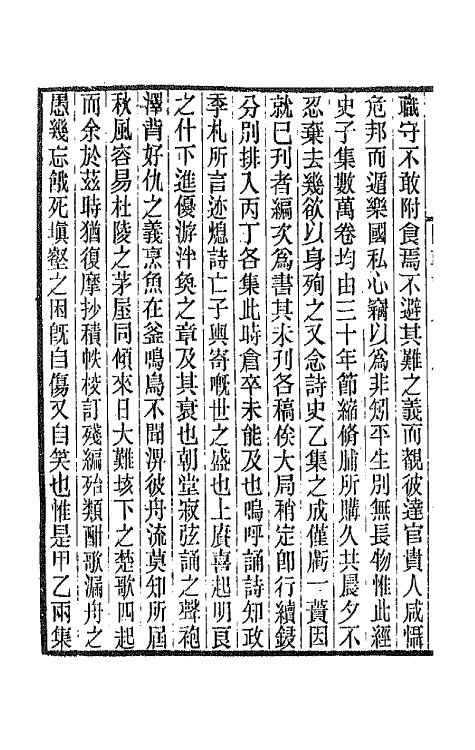 職守不敢附食焉不避其難之義而覩彼達官貴人咸懾
危邦而遁樂國私心竊以為非矧平生別無長物惟此經
史子集數萬卷均由三十年節縮脩脯所購久共晨夕不
忍棄去幾欲以身殉之又念詩史乙集之成僅虧一簣因
就已刊者編次為書其未刊各稿俟大局稍定卽行續錄
分別排入丙丁各集此時倉卒未能及也嗚呼誦詩知政
季札所言迹熄詩亡子輿寄慨世之盛也上賡喜起明良
之什下進優游泮奐之章及其衰也朝堂寂弦誦之聲袍
澤背好仇之義烹魚在釜鳴鳥不聞淠彼舟流莫知所屆
秋風容易杜陵之茅屋同傾來日大難垓下之楚歌四起
而余於茲時猶復摩抄積帙校訂殘編殆類酣歌漏舟之
愚幾忘餓死塡壑之困旣自傷又自笑也惟是甲乙兩集